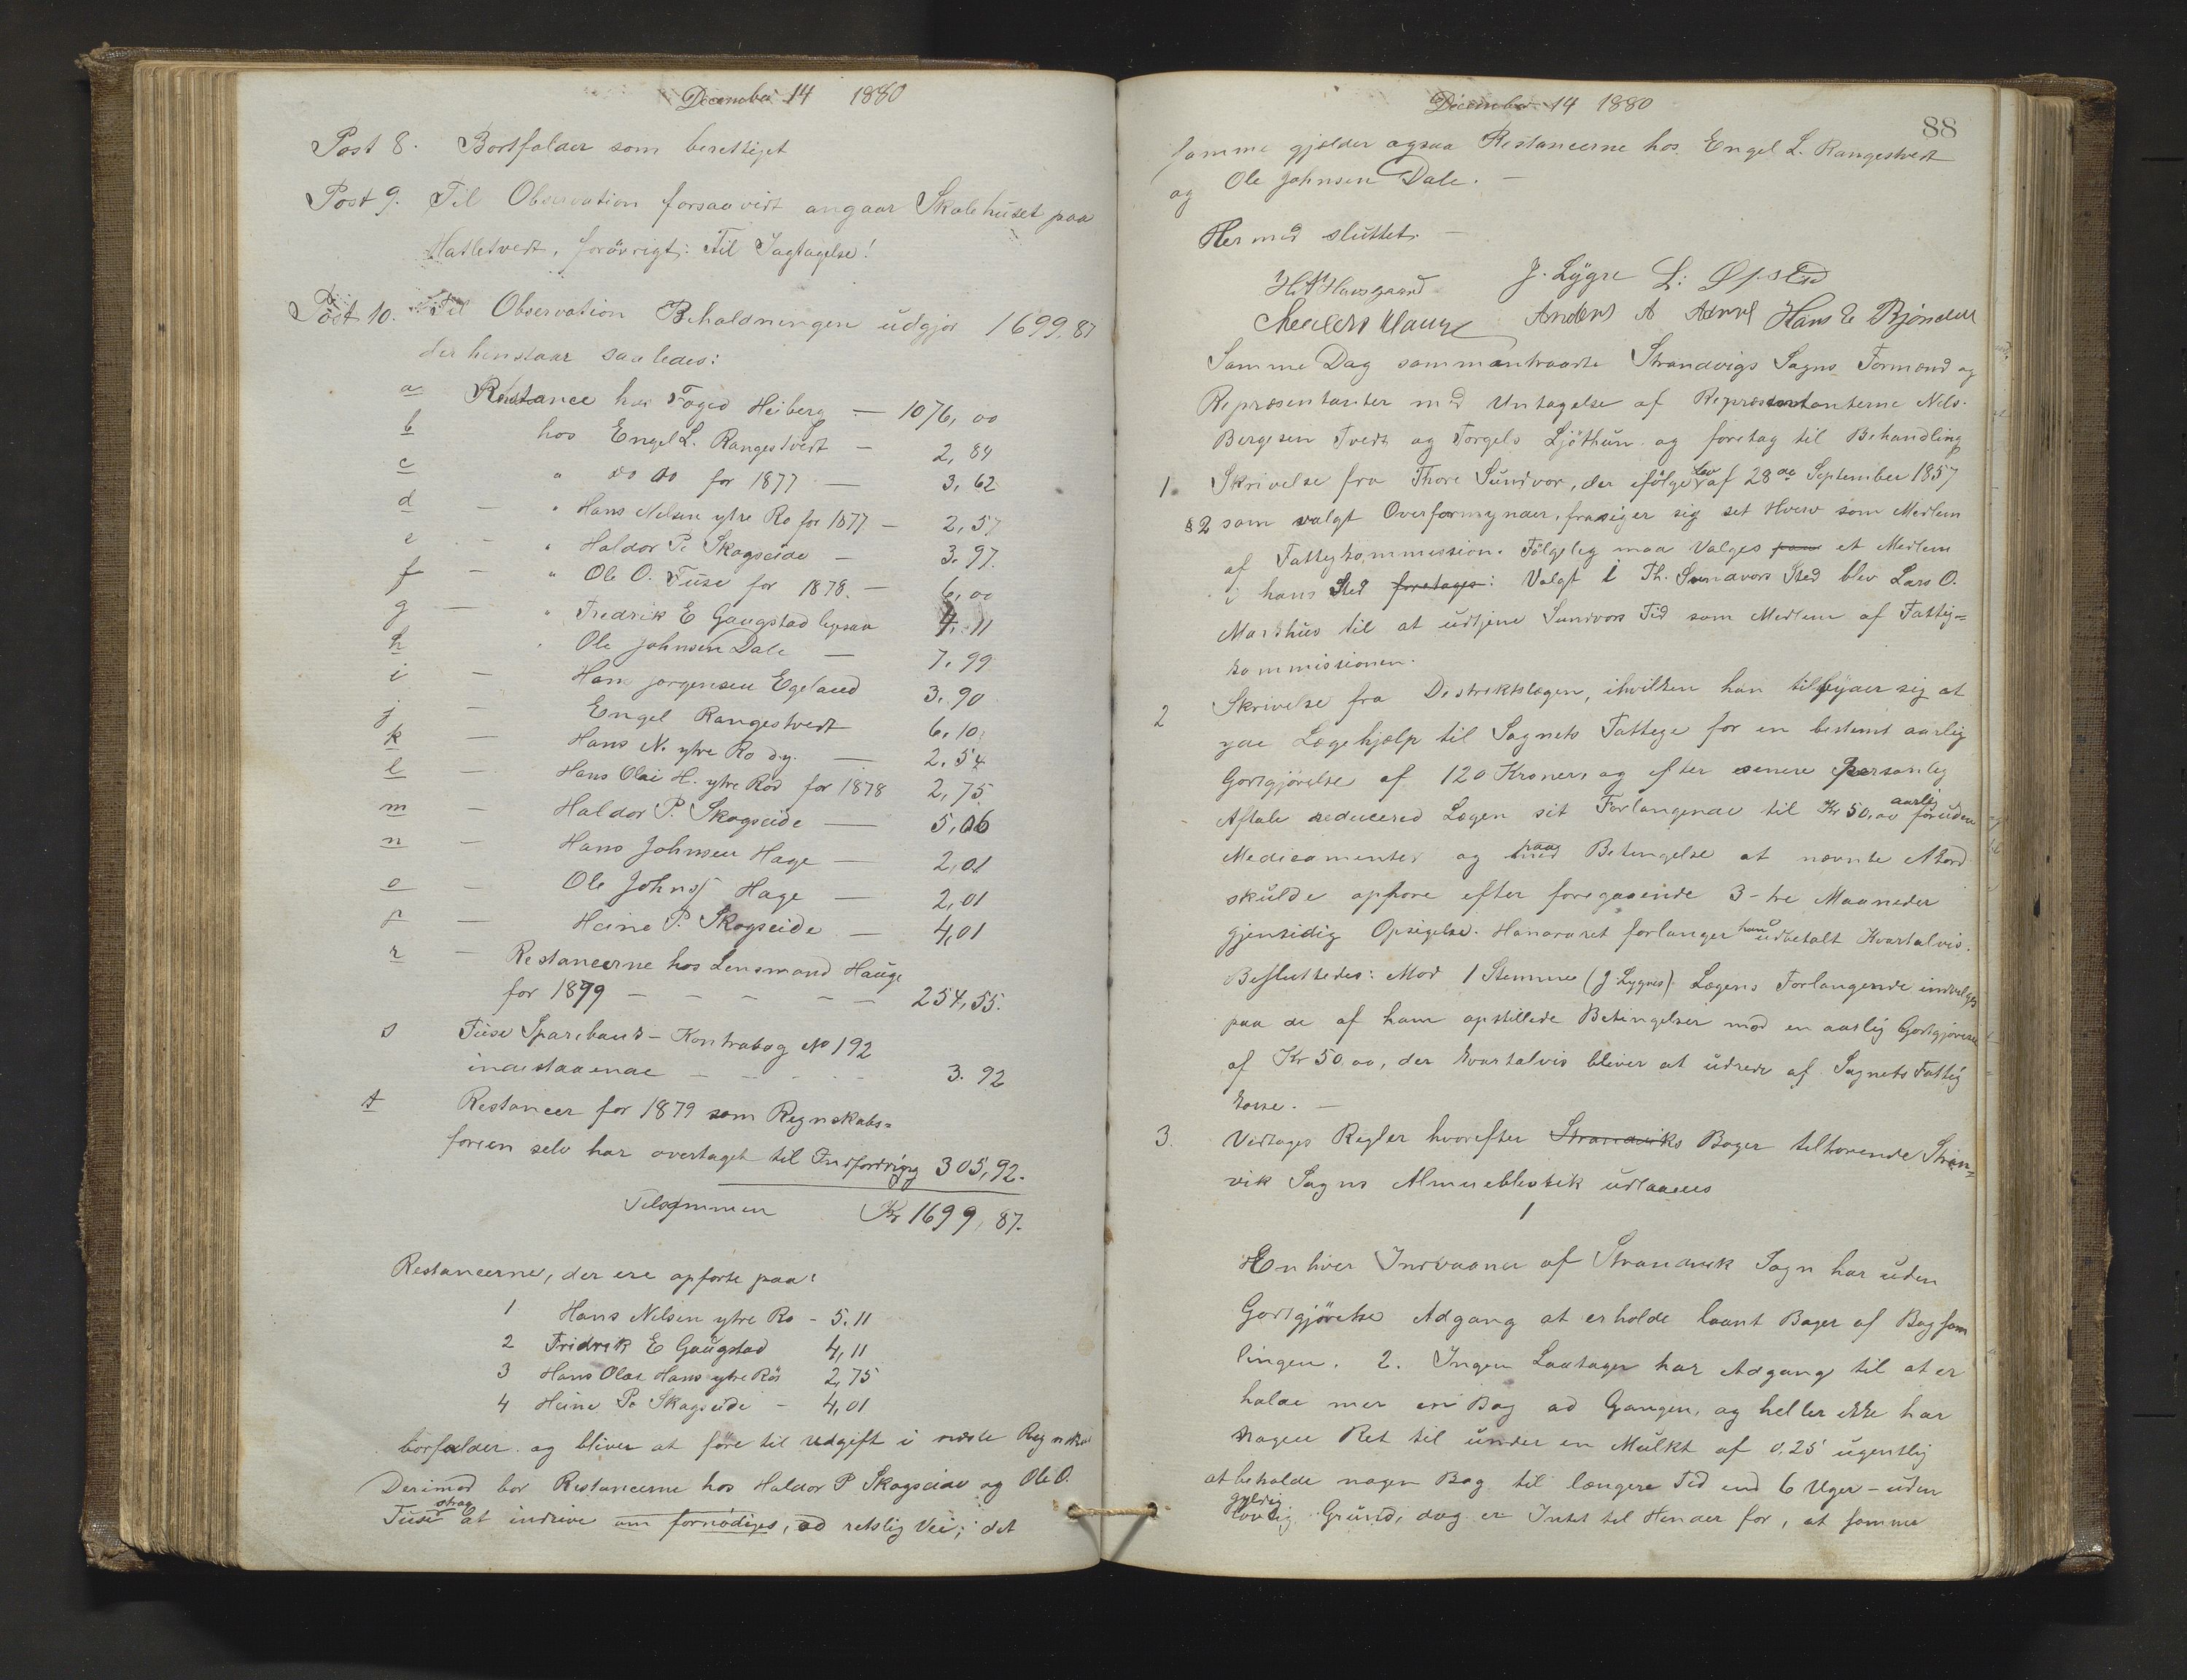 December 14 1880
Post 8. Bortfalder som berettiget
Post 9. Til Observation forsaavidt angaar Skolehuset paa
Hatletvedt, forövrigt: Til Iagtagelse!
Post 10. Til Observation Beholdningen udgjör 1699,87
der henstaar saaledes:
a Restance hos Foged Heiberg — 1076,00
b hos Engel L. Rangestvedt — 2,84
c " do do for 1877 — 3,62
d — " Hans Nilsen ytre Ro for 1877 — 2,57
e - " Haldor P. Skogseide — 3.97.
f — " Ole O. Fuse for 1878. — 6,00
g — " Fredrik E Gaugstad ligesaa 4.11
h " Ole Johnsen Dale — 7.99
i — Hans Jørgensen Egeland 3.90
j — Engel Rangestvedt 6,10
k — Hans N. ytre Ro — 2.54
l — Hans Olai H. ytre Rød for 1878 2,75
m — Haldor P. Skogseide — 5,06
n — Hans Johnsen Hage — 2,01
o — Ole Johns Hage — 2,01
p — Heine P. Skogseide — 4,01
r — Restancerne hos Lensmand Hauge
for 1879 — — — — — 254,55.
s Fuse Sparebank - Kontrabog No 192
indestaaende — — - - - 3.92
t Restancer for 1879 som Regnskabs=
føreren selv har overtaget til Indfordring 305,92.
Tilsammen Kr 1699,87.
Restancerne, der ere opførte paa:
1 Hans Nilsen ytre Ro - 5.11
2 Fridrik E Gaugstad 4,11
3 Hans Olai Hans ytre Rö 2,75
4 Heine P. Skogseide - 4,01
borfalder og bliver at före til Udgift i næste Regnskab
Derimod bør Restancerne hos Haldor P Skogseide og Ole O.
Fuse strax at indrive om fornödiges, ad retslig Vei; det
December 14 1880
88
samme gjælder ogsaa Restancerne hos Engel L. Rangestvedt
og Ole Johnsen Dale. —
Hermed sluttet. —
J. Lygre L: Øpsted
Anders A Hans E Bjöndal
Samme Dag sammentraadte Strandvigs Sogns Formænd og
Repræsentanter med Untagelse af Repræsentanterne Nils
Bergesen Tvedt og Torgels Ljöthun og foretog til Behandling
1. Skrivelse fra Thore Sundvor, der ifølge Lov af 28de September 1857
§ 2 som valgt Overformynder, frasiger sig set Hverv som Medlem
af Fattigkommission. Følgelig maa Valges et Medlem
i hans Sted foretages: Valgt i Th. Sundvors Sted blev Lars O.
Markhus til at udtjene Sundvors Tid som Medlem af Fattig=
kommissionen.
2 Skrivelse fra Distriktslægen, ihvilken han tilbyder sig at
yde Lægehjælp til Sognets Fattige for en bestemt aarlig
Godtgjörelse af 120 Kroner, og efter senere personlig
Aftale reducered Lægen sit Forlangende til Kr 50,00 aarlig foruden
Medicamenter og paa Betingelse at nævnte Akord
skulde ophøre efter foregaaende 3 - tre Maaneder
gjensidig Opsigelse. Honoraret forlanger han udbetalt Kvartalvis.
Besluttedes: Mod 1 Stemme (J Lygres) Lægens Forlangende indvilges
paa de af ham opstillede Betingelser mod en aarlig Godtgjørelse
af Kr 50.00, der kvartalvis bliver at udrede af Sognets Fattig
kasse. —
3. Vedtoges Regler hvorefter Strandviks Bøger tilhørende Stran=
vik Sogns Almuebliothek udlaanes
1
Enhver Indvaaner af Strandvik Sogn har uden
Godtgjörelse Adgang at erholde laant Bøger af Bogsam
lingen. 2. Ingen Laatager har Adgang til at er
holde mer en Bog ad Gangen, og heller ikke har
nogen Ret til under en Mulkt af 0,25 ugentlig
at beholde nogen Bog til længere Tid end 6 Uger - uden
gyldig lovlig Grund, dog er Intet til Hinder for, at samme